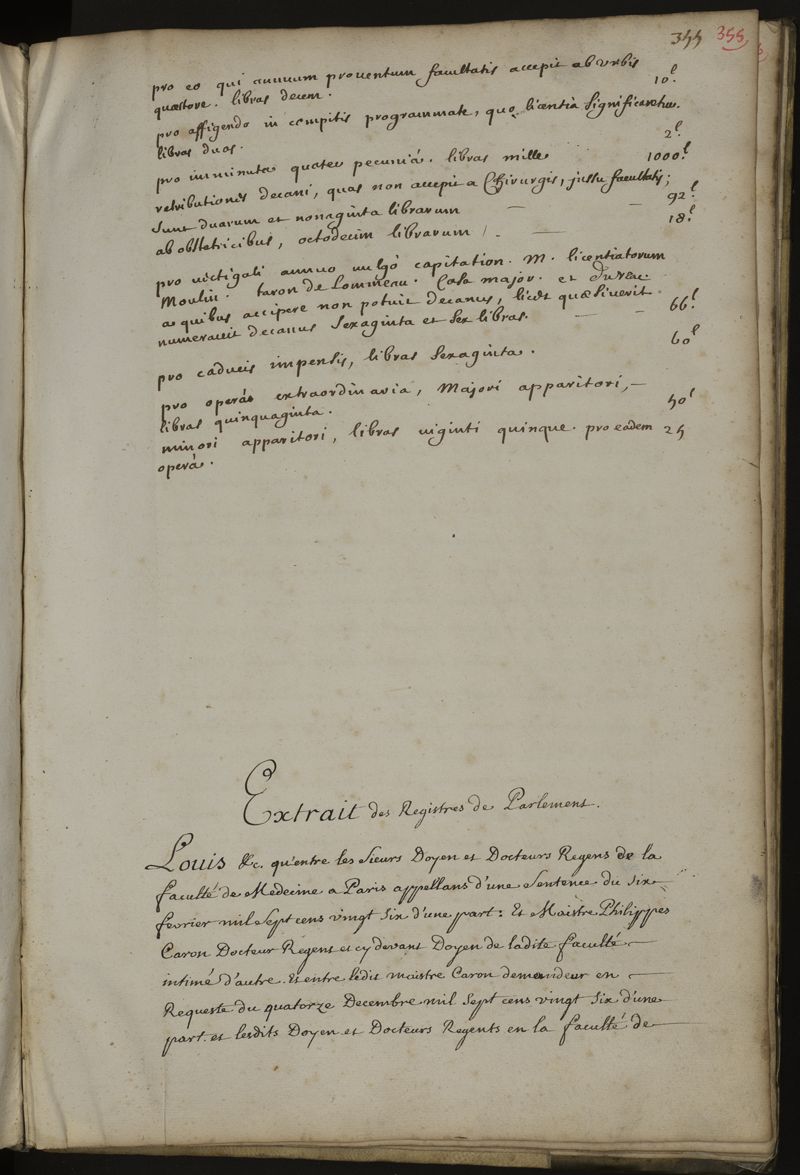 355 355
pro eo qui annuum prouentum facultatis accepit ab urbis
quæstore. libras decem. 10.l
pro affigendo in compitis programmate, quo licentia significaretur.
libras duas. 2.l
pro imminuta quater pecuniâ. libras mille 1000.l
retributiones decani, quas non accepit a Chirurgis, jussu facultatis;
sunt duarum et nonaginta librarum — — 92.l
ab obstetricibus, octodecim librarum / . — 18.l
pro uectigali annuo uulgò capitation. M. licentiatorum
Moulin. taron de Lommeau. Casa major. et
a quibus accipere non potuit decanus, licet quæsiuerit.
numerauit decanus sexaginta et sex libras. — — 66.l
pro caducis impensis, libras sexaginta. 60l
pro operâ extraordinaria, Majori apparitori, —
libras quinquaginta. 50l
minori apparitori, libras uiginti quinque. pro eadem 25
operâ.
Extrait des Registres de Parlement.
Louis &c. qu'entre les Sieurs Doyen et Docteurs Regens de la
faculté de Medecine a Paris appellans d'une Sentence du six
fevrier mil sept cens vingt six d'une part: Et Maistre Philippes
Caron Docteur Regent et cy devant Doyen de ladite faculté —
intimé d'autre. Et entre ledit maistre Caron demandeur en —
Requeste du quatorze Decembre mil sept cens vingt six d'une
part. et lesdits Doyen et Docteurs Regents en la faculté de —